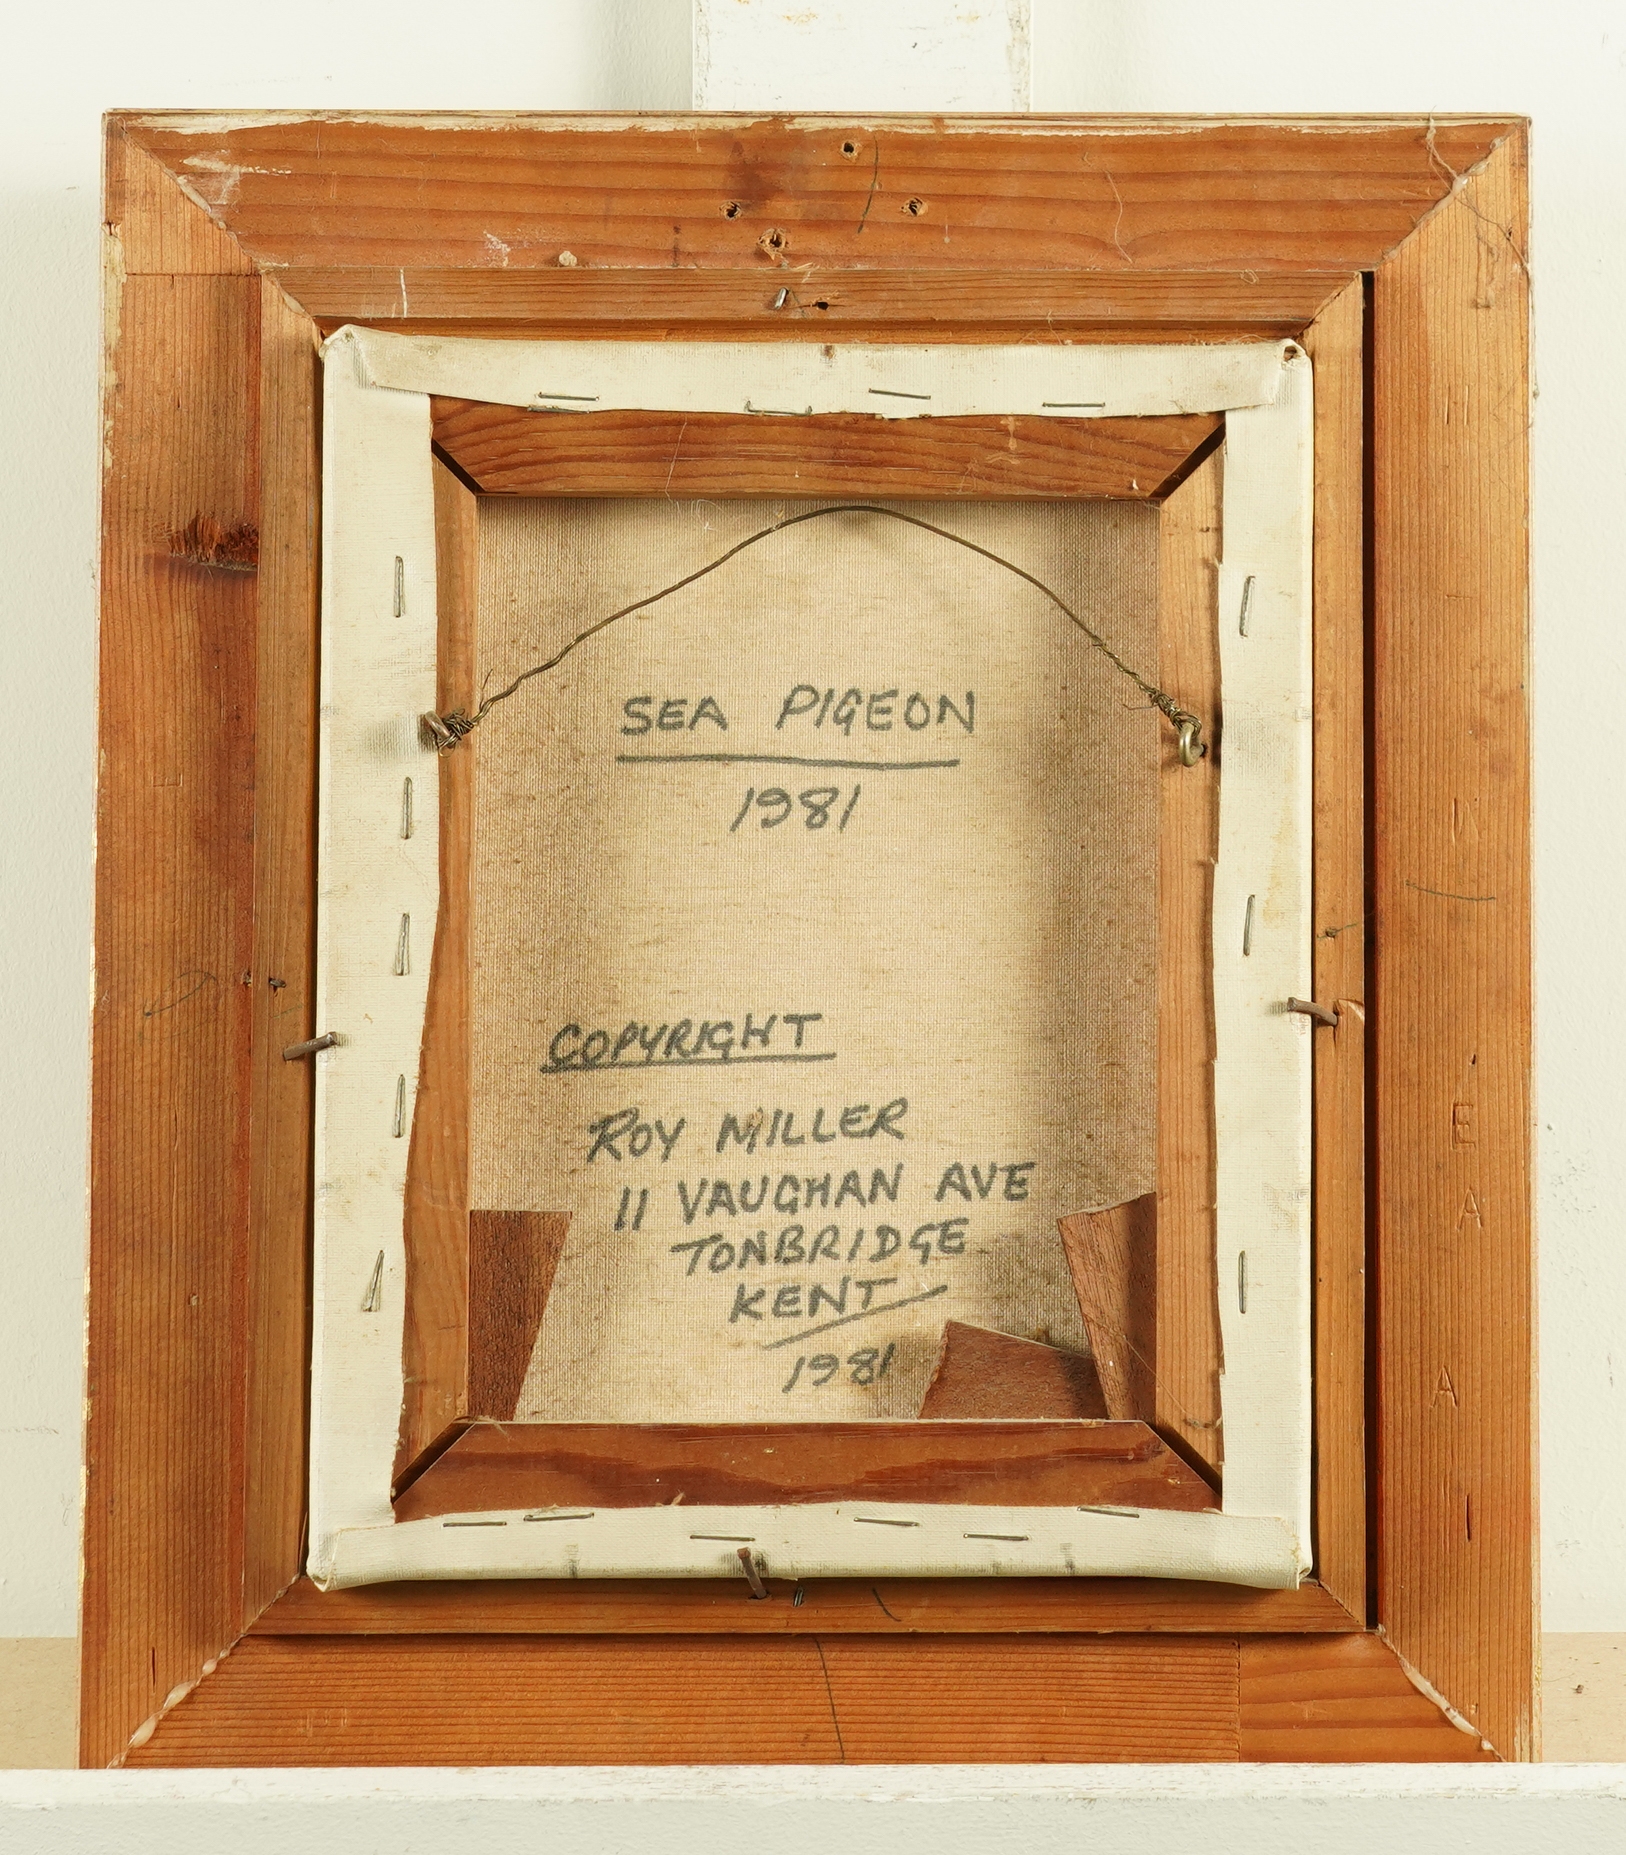 SEA PIGEON
1981
COPYRIGHT
ROY MILLER
11 VAUGHAN AVE
TONBRIDGE
KENT
1981